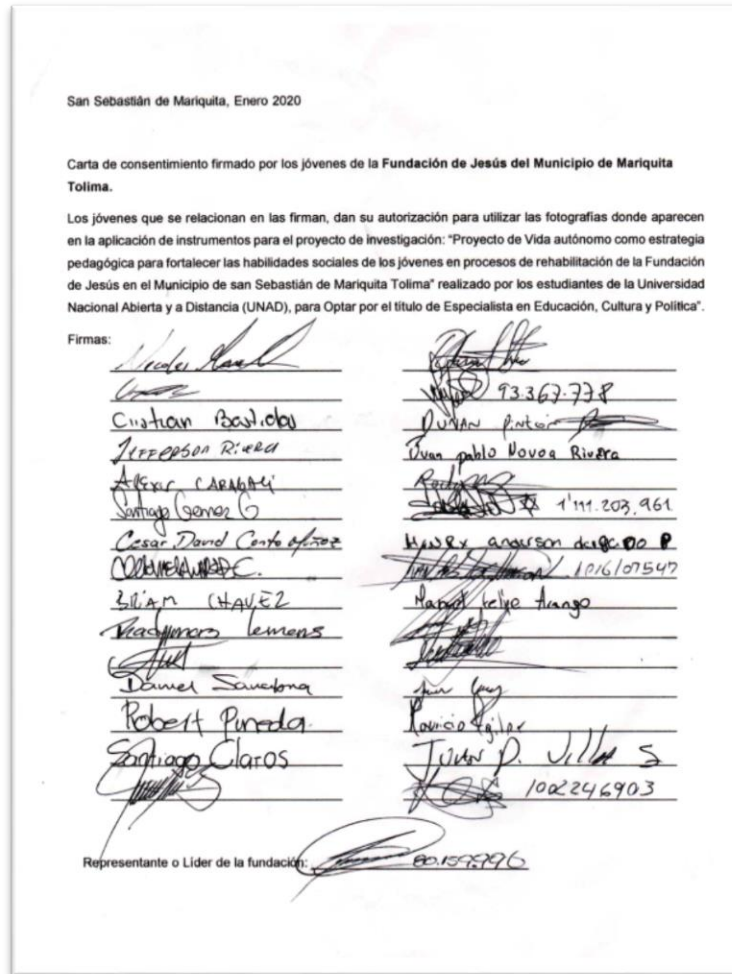 San Sebastián de Mariquita, Enero 2020
Carta de consentimiento firmado por los jóvenes de la Fundación de Jesús del Municipio de Mariquita
Tolima.
Los jóvenes que se relacionan en las firman, dan su autorización para utilizar las fotografías donde aparecen
en la aplicación de instrumentos para el proyecto de investigación: "Proyecto de Vida autónomo como estrategia
pedagógica para fortalecer las habilidades sociales de los jóvenes en procesos de rehabilitación de la Fundación
de Jesús en el Municipio de san Sebastián de Mariquita Tolima" realizado por los estudiantes de la Universidad
Nacional Abierta y a Distancia (UNAD), para Optar por el título de Especialista en Educación, Cultura y Política".
Firmas:
Nicolas
Cristian Bastidas
JEFFERSON RIVERA
CARABALI
Santiago Gomez G
Cesar David
BRIAM CHAVEZ
Daniel
Robert Pineda
Santiago Claros
93.367.778
DUVAN
Juan pablo Novoa Rivera
Rodriguez
1'111.203.961
HENRY anderson delgado P
Manuel felipe Arango
JUAN D. Villa S
1002246903
Representante o Líder de la fundación: 80.159.996